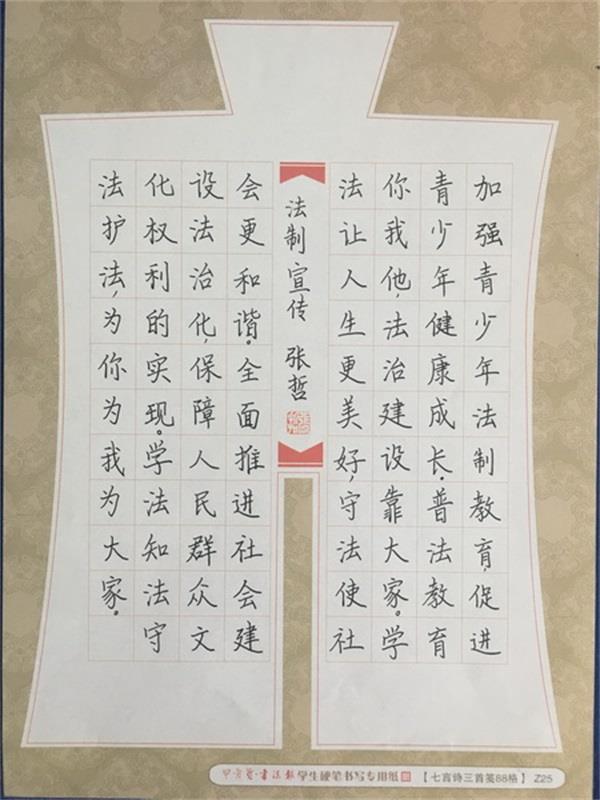 加强青少年法制教育,促进
青少年健康成长。普法教育
你我他,法治建设靠大家。学
法让人生更美好,守法使社
法制宣传 张哲
会更和谐。全面推进社会建
设法治化,保障人民群众文
化权利的实现。学法知法守
法护法,为你为我为大家。
学生硬笔书写专用纸 【七言诗三首笺88格】 Z25